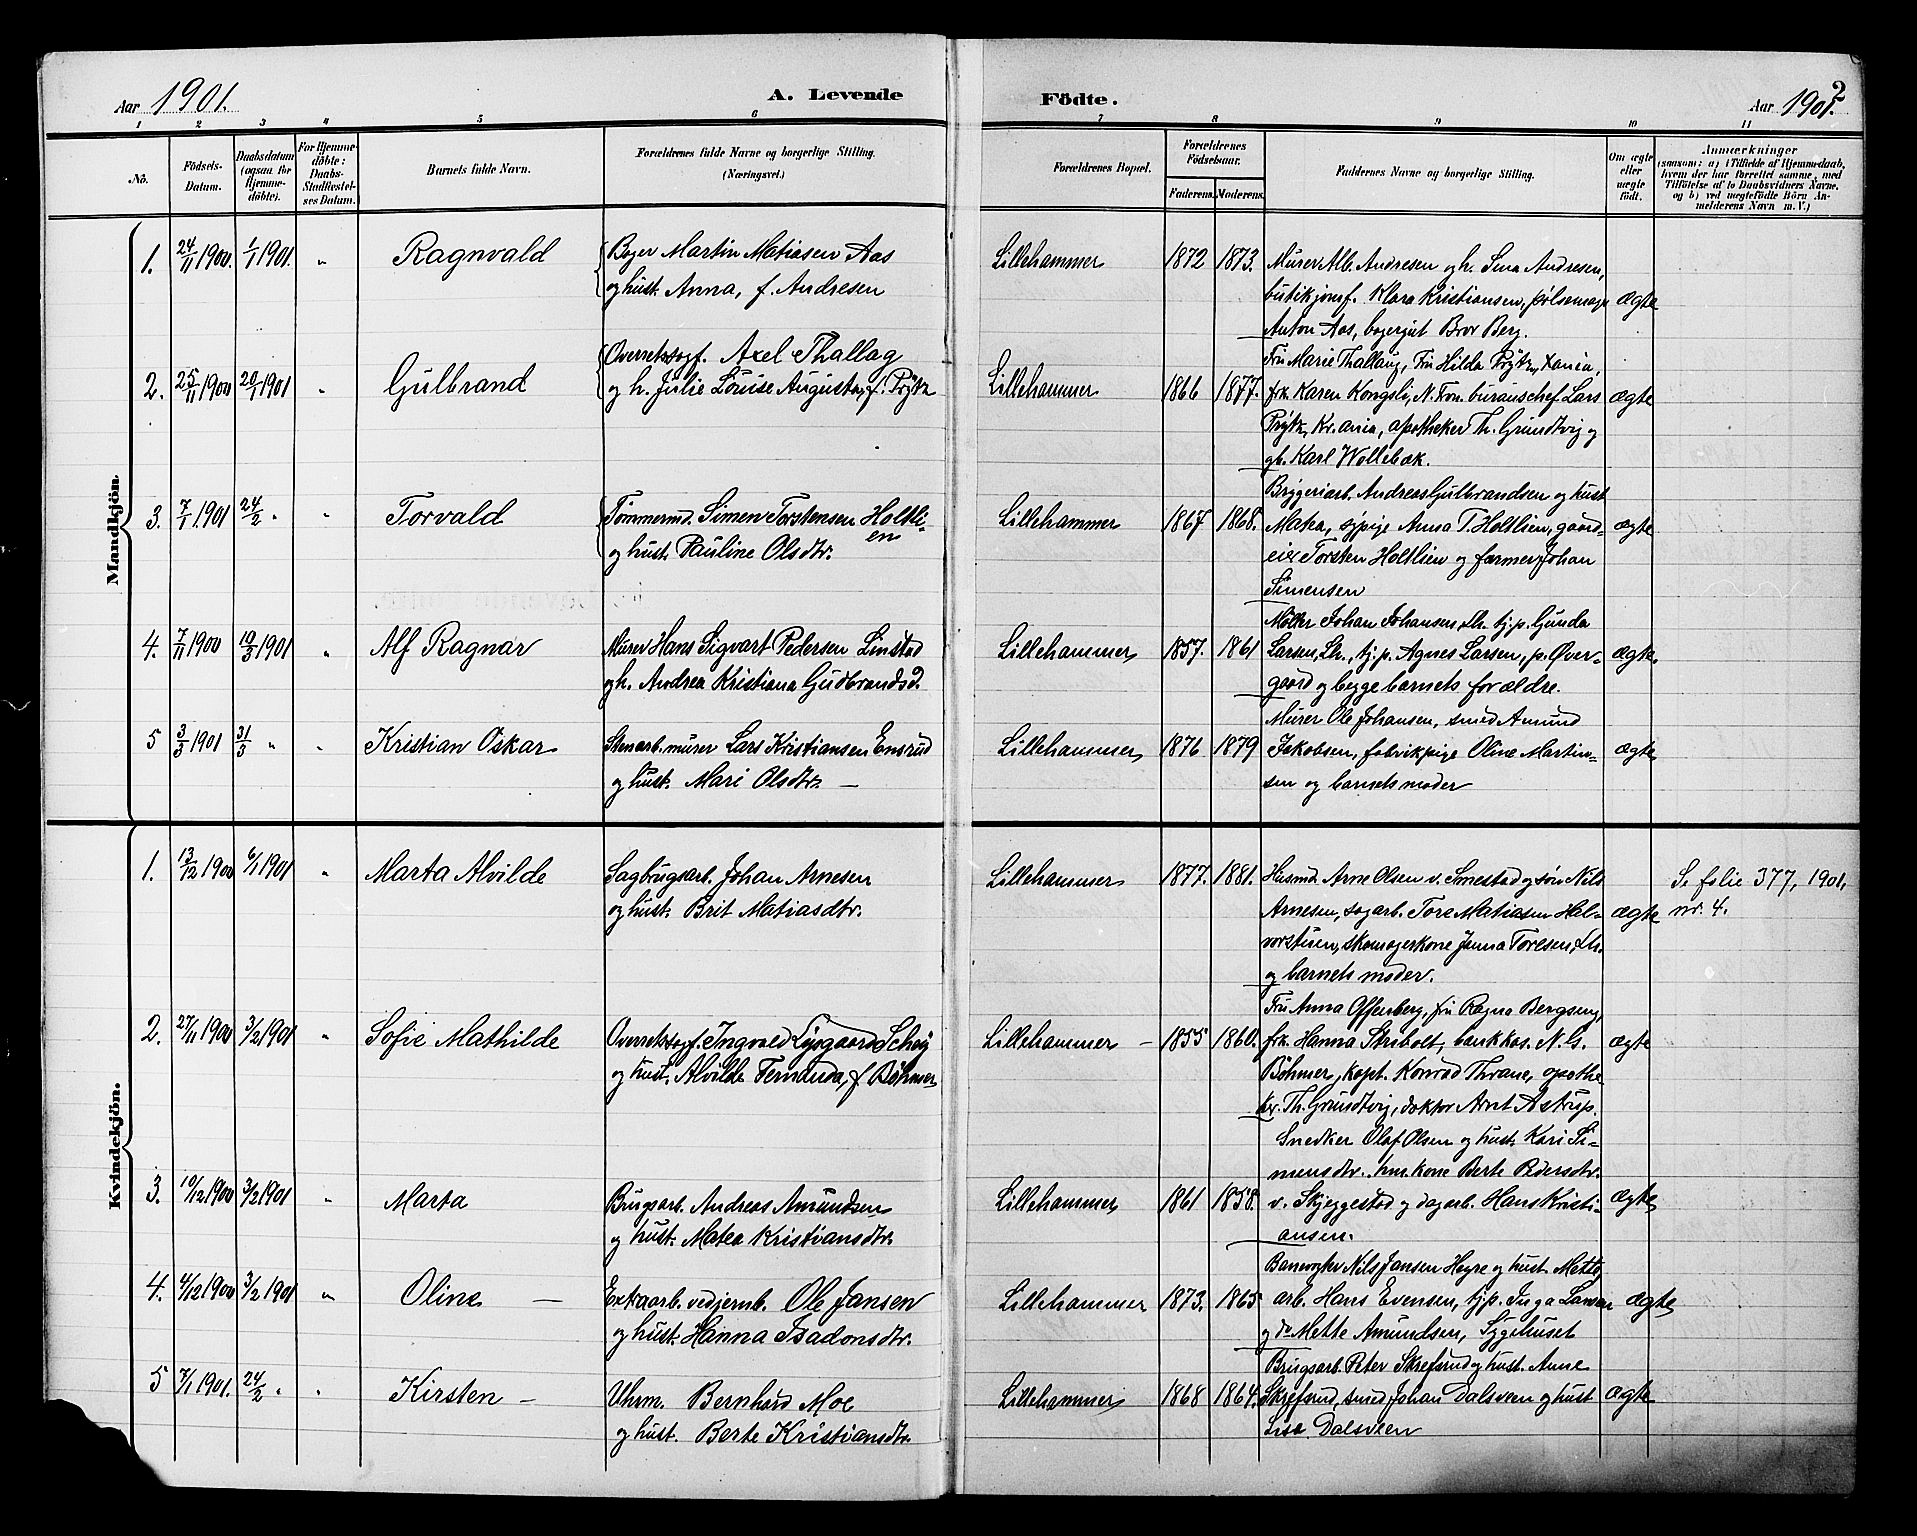 Aar 1901. A. Levende
Födte. Aar 1901. 2
1 2 3 4 5 6 7 8 9 10 11
No.
Födsels-
Datum.
Daabsdatum
(ogsaa for
Hjemme-
döbte).
For Hjemme-
döbte:
Daabs-
Stadfæstel-
ses Datum.
Barnets fulde Navn.
Forældrenes fulde Navne og borgerlige Stilling.
(Næringsvei.)
Forældrenes Bopæl.
Forældrenes
Födselsaar.
Faderens. Moderens.
Faddernes Navne og borgerlige Stilling.
Om ægte
eller
uægte
födt.
Anmærkninger
(saasom: a) i Tilfælde af Hjemmedaab,
hvem der har forrettet samme, med
Tilföielse af to Daabsvidners Navne,
og b) ved uægtefödte Börn An-
melderens Navn m. V.)
Mandkjön.
1. 24/11 1900. 1/1 1901. " Ragnvald
Bager Martin Matiasen Aas
og hust. Anna, f. Andresen
Lillehammer 1872 1873.
Murer Alb. Andresen og h. Lina Andresen,
butikjomf. Klara Kristiansen, pølsemager
Anton Aas, bagergut Bror Berg.
ægte
2. 25/11 1900 20/1 1901 " Gulbrand
Overretssagf. Axel Thallaug
og h. Julie Louise Augusta, f. Prytz
Lillehammer 1866 1877.
Fru Marie Thallaug, Fru Hilda Prytz, Xania,
frk. Karen Kongsli, N. Fron. burauschef Lars
Prytz, Kr.ania, apotheker Th. Grundtvig og
gb. Karl Wollebæk.
ægte
3. 7/1 1901 24/2 " " Torvald
Tømmermd. Simen Torstensen Holtli-
en
og hust. Pauline Olsdtr.
Lillehammer 1867 1868.
Bryggeriarb. Andreas Gulbrandsen og hust
Matea, sypige Anna T. Holtlien, gaard-
eier Torsten Holtlien og farmer Johan
Simensen
ægte
4. 7/11 1900 10/3 1901 " Alf Ragnar
Murer Hans Sigvart Pedersen Linstad
og h. Andrea Kristiana Gudbrandsd.
Lillehammer 1857. 1861
Møller Johan Johansen, Lh. tj.p. Gunda
Larsen, Lh., tj.p. Agnes Larsen, p. Øver-
gaard og begge barnets forældre.
ægte.
5 3/3 1901 31/3 " " Kristian Oskar
Stenarb. murer Lars Kristiansen Ensrud
og hust. Mari Olsdtr. —
Lillehammer 1876 1879
Murer Ole Johansen, smed Amund
Jakobsen, fabrikpige Oline Martin-
sen og barnets moder
ægte
Kvindekjön.
1. 13/12 1900 6/1 1901 " Marta Alvilde
Sagbrugsarb. Johan Arnesen
og hust. Brit Matiasdtr.
Lillehammer 1877. 1881.
Husmd. Arne Olsen v. Smestad og søn Nils
Arnesen, sagarb. Tore Matiasen Hal-
vorstuen, skomagerkone Jenna Toresen, Lh.
og barnets moder.
ægte
S. folie 377, 1901,
nr. 4.
2. 27/11 1900 3/2 1901 " Sofie Mathilde
Overretssagf. Ingvald Lysgaard Schøy
og hust. Alvilde Fernanda, f. Bøhmer
Lillehammer — 1855 1860.
Fru Anna Offenberg, fru Ragna Bergseng,
frk. Hanna Skribolt, bankkas. N. G.
Bøhmer, kapt. Konrad Thrane, apothe-
ker Th. Grundtvig, doktor Arnt Astrup.
ægte
3. 10/12 1900 3/2 1901 " Marta
Brugsarb. Andreas Amundsen
og hust. Matea Kristiansdtr.
Lillehammer 1861 1858.
Snedker Olaf Olsen og hust. Kari Si-
mensdtr. hmkone Berte Pedersdtr.
v. Skjeggestad og dagarb. Hans Kristi-
ansen.
ægte
4. 4/12 1900 3/2 1901 " Oline —
Extraarb. ved jernb. Ole Jansen
og hust. Hanna Isadonsdtr.
Lillehammer 1873. 1865
Banvogter Nils Jansen Høyre og hust. Mette,
arb. Hans Evensen, tj.p. Inga Larsen
og do Mette Amundsen, Sygehuset
ægte
5 7/1 1901. 24/2 " " Kirsten —
Uhrm. Bernhard Moe
og hust. Berte Kristiansdtr.
Lillehammer 1868 1864.
Brugsarb. Peter Skrefsrud og hust. Anne
Skrefsrud, smed Johan Dalsveen og hust
Lisa Dalsveen
ægte